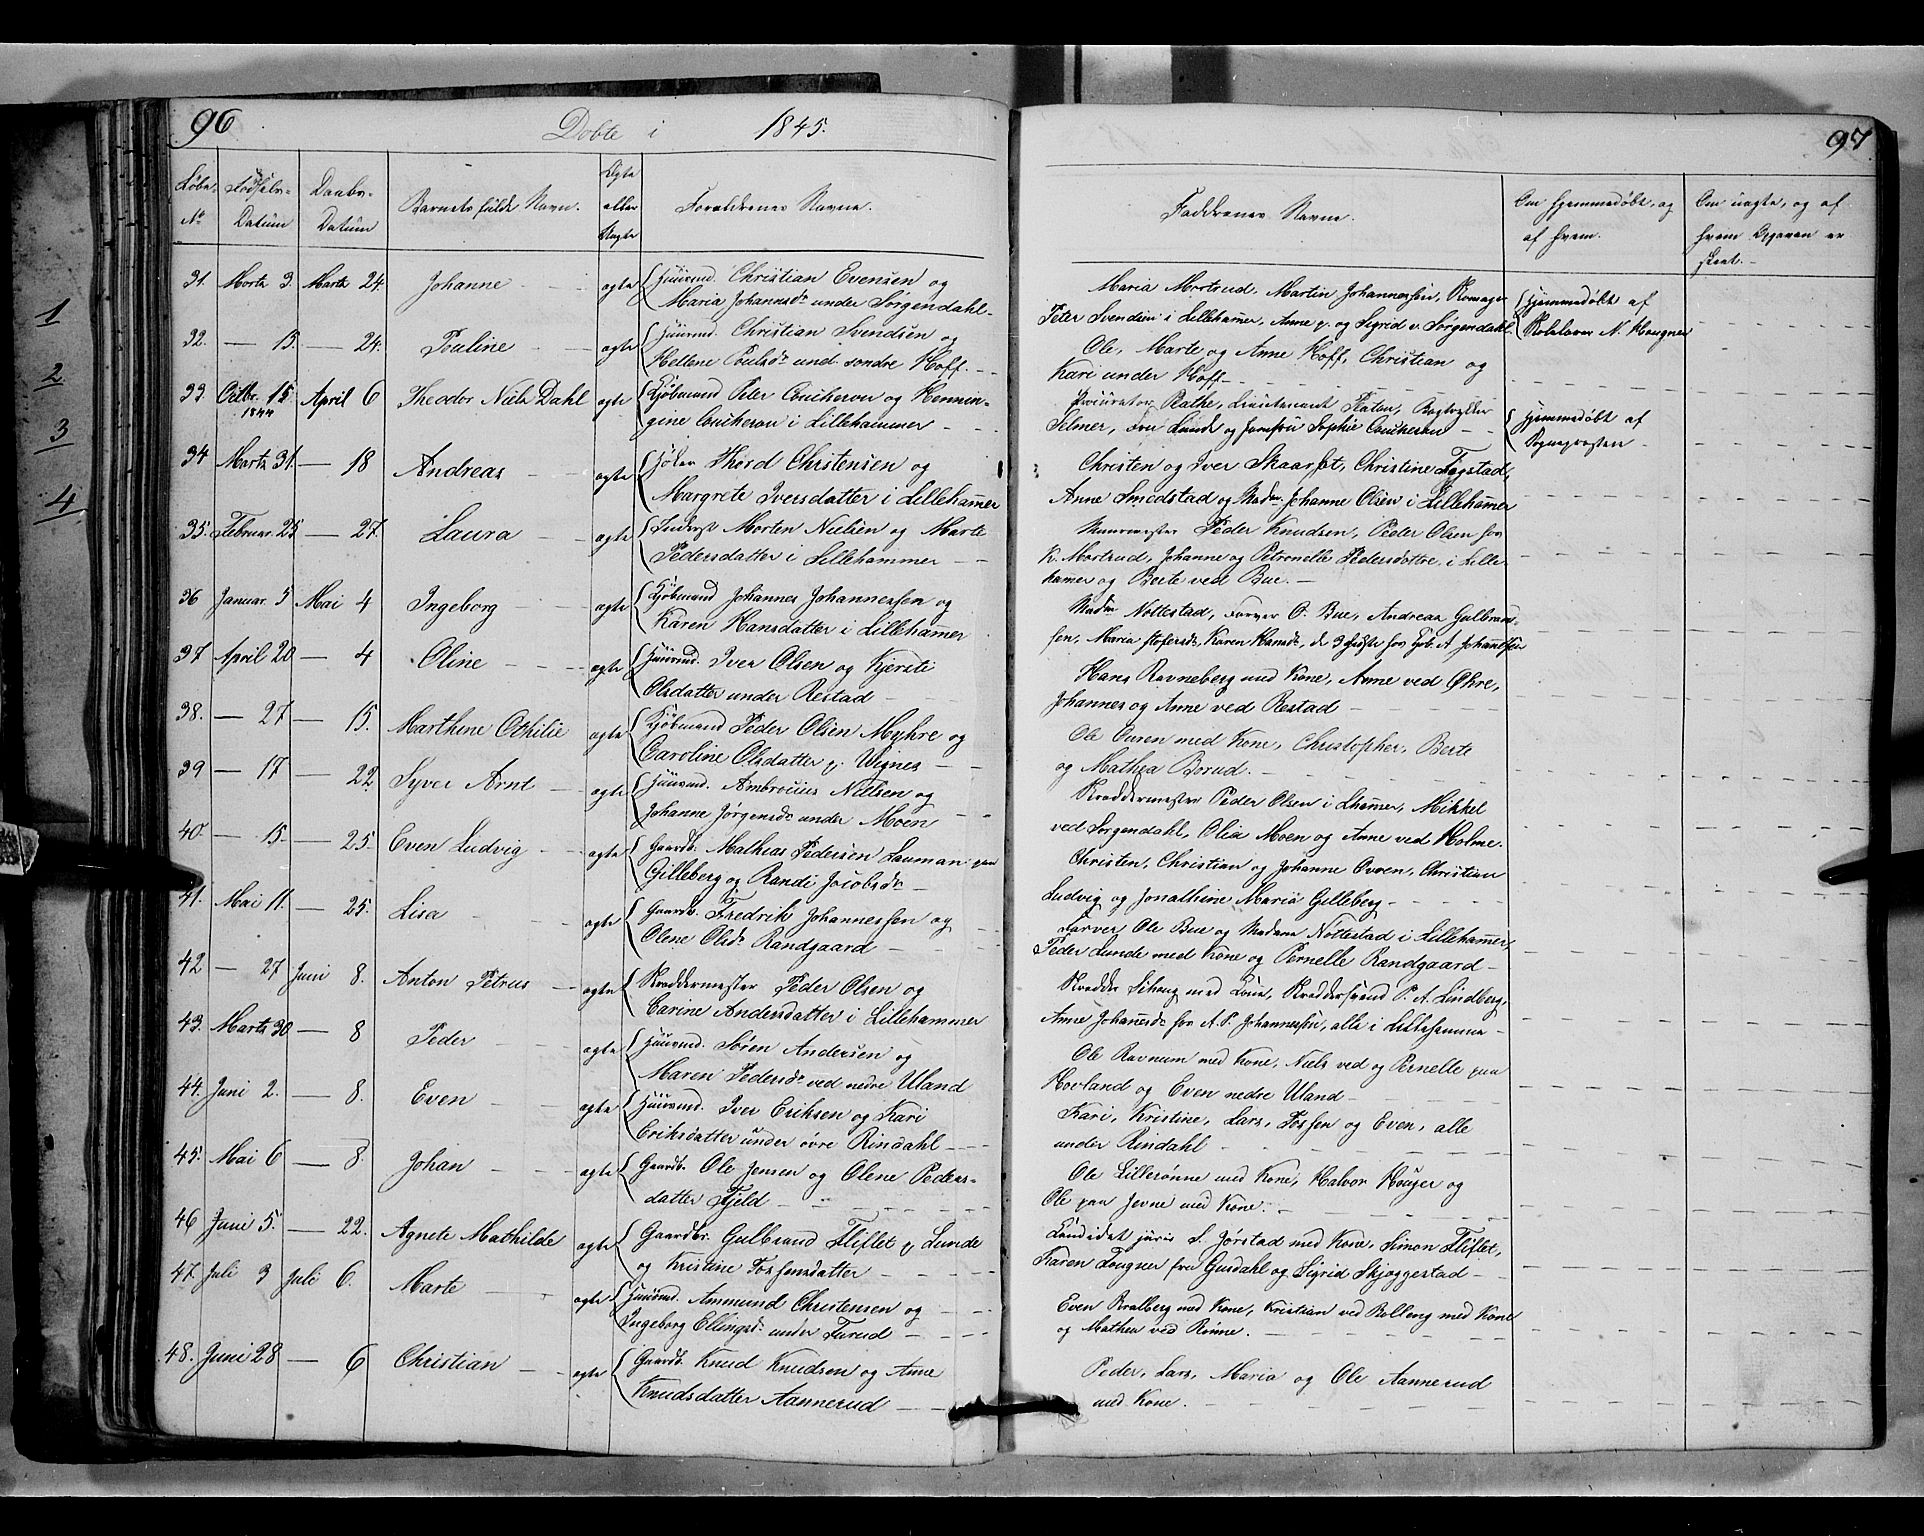 96
Døbte i 1845.
Løbe- No
Fødsels- Datum
Daabs- Datum
Barnets fulde Navn.
Ægte eller Uægte
Forældrenes Navne.
31. Marts 3. Marts 24. Johanne ægte Huusmd. Christian Evensen og
Maria Johannsdr under Sørgendahl
32. — 13. — 24. Pouline ægte Huusmd. Christian Svendsen og
Hellene Poulsdr und. søndre Hoff.
33. Octbr. 15 1844 April 6 Theodor Niels Dahl ægte Kjøbmand Peter Coucheron og Hennin-
gine Coucheron i Lillehammer
34 Marts 31. — 18 Andreas ægte Thord Christensen og
Margrete Iversdatter i Lillehamer
35. Februar. 25 — 27. Laura ægte Inderst Morten Nielsen og Marte
Pedersdatter i Lillehammer
36 Januar. 5 Mai 4 Ingeborg ægte Kjøbmand Johannes Johannessen og
Karen Hansdatter i Lillehamer
37 April 20 — 4 Oline ægte Huusmd. Iver Olsen og Kjersti
Olsdatter under Restad
38. — 27 — 15. Marthine Othilie ægte Kjøbmand Peder Olsen Myhre og
Caroline Olsdatter p. Vignes
39 — 17 — 22 Syver Arnt ægte Huusmd. Ambrosius Nielsen og
Johanne Jørgensdr under Moen
40. — 15. — 25. Even Ludvig ægte Gaardb. Mathias Pedersen Lauman paa
Gilleberg og Randi Jacobsdr
41. Mai 11. — 25. Lisa ægte Gaardb. Fredrik Johannessen og
Olene Olsdr Randgaard
42 — 27 Juni 8. Anton Petrus ægte Skreddermester Peder Olsen og
Carine Andersdatter i Lillehammer
43. Marts 30 — 8 Peder ægte Huusmd. Søren Andersen og
Maren Pedersdr ved nedre Uland
44. Juni 2. — 8. Even ægte Huusmd. Iver Eriksen og Kari
Eriksdatter under øvre Rindahl
45. Mai 6 — 8. Johan ægte Gaardb. Ole Jensen og Olene Peders-
datter Fjeld
46 Juni 5. — 22. Agnete Mathilde ægte Gaardbr. Gulbrand Fliflet p. Lunde
og Kristine Tostensdatter
47. Juli 3 Juli 6. Marte ægte Huusmd. Ammund Christensen og
Ingeborg Ellingsdr under Furud
48. Juni 28 — 6 Christian ægte Gaardb. Knud Knudsen og Anne
Knudsdatter Aannerud
97
Faddrenes Navne.
Om hjemmedøbt, og af hvem.
Om uægte, og af hvem Opgaven er skeet.
Maria Mortrud. Martin Johannessen,
Peter Svendsen i Lillehamer, Anne p. og Sigrid v. Sørgendahl
Hjemmedøbt af
Skolelærer N. Hougner
Ole, Marte og Anne Hoff, Christian og
Kari under Hoff
Procurator Rathe, Lieutenant Platou,
Selmer, fru Lunde og Jomfru Sophie Couheron
Hjemmedøbt af
Sognepresten
Christen og Iver Skaarset, Christine Fogstad,
Anne Smedstad og Madm. Johanne Olsen i Lillehamer
Muurmester Peder Knudsen, Peder Olsen hos
K. Mortrud, Johanne og Petronelle Pedersdøttre, i Lille-
hamer og Berte ved Bue.
Madm Nottestad, Farver O. Bue, Andreas Gulbrand-
sen, Maria Stefersdr, Karen Hansdr, de 3 sidste hos Kjb. A Johannssen
Hans Ravneberg med Kone, Anne ved Økre,
Johannes og Anne ved Restad
Ole Ouren med Kone, Christopher, Berte
og Mathea Borud.
Skreddermester Peder Olsen i Lhamer, Mikkel
ved Sørgendahl, Olia Moen og Anne ved Holme.
Christen, Christian og Johanne Ouren, Christian
Ludvig og Jonathine Maria Gilleberg
Farver Ole Bue og Madam Nottestad i Lillehamer,
Peder Lunde med Kone og Pernelle Randgaard
Skredder med Kone, Skreddersvend P. A. Lindberg,
Anne Johanesdr hos A. P. Johannessen, alle i Lillehamer
Ole Ravnum med Kone, Niels ved og Pernelle paa
Hovland og Even nedre Uland
Kari, Kristine, Lars, Tosten og Even, alle
under Rindahl
Ole Lillerønne med Kone, Halvor Houger og
Ole paa Jevne med Kone.
Candidat juris S. Jørstad med Kone, Simon Fliflet,
Karen Fougner fra Gusdahl og Sigrid Skjøggestad
Even Bralberg med Kone, Kristian ved Bolleng med Kone
og Mathea ved Rønne.
Peder, Lars, Maria og Ole Aannerud
med Kone.
1
2
3
4